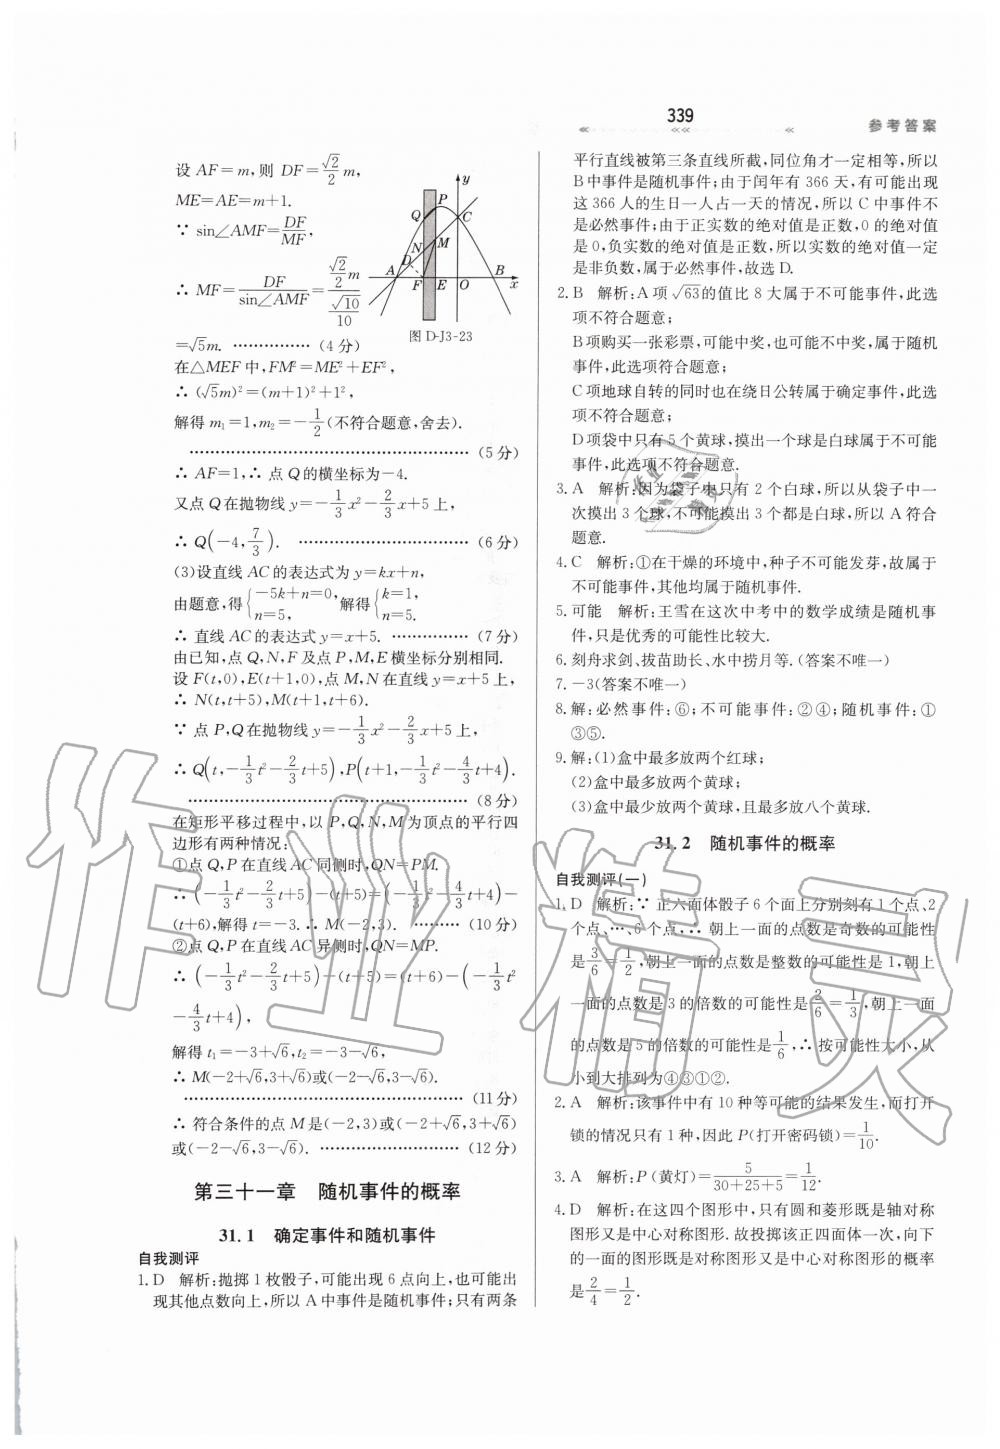 339
参考答案
设 AF=m,则 DF=√2/2 m,
ME=AE=m+1.
∵ sin∠AMF=DF/MF,
∴ MF=DF/sin∠AMF=(√2/2 m)/(√10/10)
=√5m. ……………(4分)
在△MEF中,FM²=ME²+EF²,
∴ (√5m)²=(m+1)²+1²,
解得 m₁=1,m₂=-1/2(不符合题意,舍去).
……………(5分)
∴ AF=1,∴ 点 Q的横坐标为-4.
又点 Q在抛物线 y=-1/3x²-2/3x+5上,
∴ Q(-4,7/3). ……………(6分)
(3)设直线 AC的表达式为 y=kx+n,
由题意,得{-5k+n=0, n=5, 解得{k=1, n=5.
∴ 直线 AC的表达式 y=x+5. ……………(7分)
由已知,点 Q,N,F及点 P,M,E横坐标分别相同.
设 F(t,0),E(t+1,0),点 M,N在直线 y=x+5上,
∴ N(t,t+5),M(t+1,t+6).
∵ 点 P,Q在抛物线 y=-1/3x²-2/3x+5上,
∴ Q(t,-1/3t²-2/3t+5),P(t+1,-1/3t²-4/3t+4).
……………(8分)
在矩形平移过程中,以 P,Q,N,M为顶点的平行四
边形有两种情况:
①点 Q,P在直线 AC同侧时,QN=PM.
∴ (-1/3t²-2/3t+5)-(t+5)=(-1/3t²-4/3t+4)-
(t+6),解得 t=-3.∴ M(-2,3). ………(10分)
②点 Q,P在直线 AC异侧时,QN=MP.
∴ (-1/3t²-2/3t+5)-(t+5)=(t+6)-(-1/3t²
-4/3t+4),
解得 t₁=-3+√6,t₂=-3-√6,
∴ M(-2+√6,3+√6)或(-2-√6,3-√6).
……………(11分)
∴ 符合条件的点 M是(-2,3)或(-2+√6,3+√6)
或(-2-√6,3-√6). ……………(12分)
y
P
Q
C
N
M
D
A
F
E
O
B
x
图 D-J3-23
第三十一章 随机事件的概率
31.1 确定事件和随机事件
自我测评
1.D 解析:抛掷 1枚骰子,可能出现 6点向上,也可能出
现其他点数向上,所以 A中事件是随机事件;只有两条
平行直线被第三条直线所截,同位角才一定相等,所以
B中事件是随机事件;由于闰年有366天,有可能出现
这366人的生日一人占一天的情况,所以 C中事件不
是必然事件;由于正实数的绝对值是正数,0的绝对值
是0,负实数的绝对值是正数,所以实数的绝对值一定
是非负数,属于必然事件,故选D.
2.B 解析:A项√63的值比8大属于不可能事件,此选
项不符合题意;
B项购买一张彩票,可能中奖,也可能不中奖,属于随机
事件,此选项符合题意;
C项地球自转的同时也在绕日公转属于确定事件,此选
项不符合题意;
D项袋中只有5个黄球,摸出一个球是白球属于不可能
事件,此选项不符合题意.
3.A 解析:因为袋子中只有 2个白球,所以从袋子中一
次摸出3个球,不可能摸出3个都是白球,所以A符合
题意.
4.C 解析:①在干燥的环境中,种子不可能发芽,故属于
不可能事件,其他均属于随机事件.
5.可能 解析:王雪在这次中考中的数学成绩是随机事
件,只是优秀的可能性比较大.
6.刻舟求剑、拔苗助长、水中捞月等.(答案不唯一)
7.-3(答案不唯一)
8.解:必然事件:⑥;不可能事件:②④;随机事件:①
③⑤.
9.解:(1)盒中最多放两个红球;
(2)盒中最多放两个黄球;
(3)盒中最少放两个黄球,且最多放八个黄球.
31.2 随机事件的概率
自我测评(一)
1.D 解析:∵ 正六面体骰子6个面上分别刻有1个点、2
个点、…、6个点,∴ 朝上一面的点数是奇数的可能性
是3/6=1/2,朝上一面的点数是整数的可能性是1,朝上
一面的点数是3的倍数的可能性是2/6=1/3,朝上一面
的点数是5的倍数的可能性是1/6,∴ 按可能性大小,从
小到大排列为④③①②.
2.A 解析:该事件中有10种等可能的结果发生,而打开
锁的情况只有1种,因此 P(打开密码锁)=1/10.
3.A 解析:P(黄灯)=5/(30+25+5)=1/12.
4.D 解析:在这四个图形中,只有圆和菱形既是轴对称
图形又是中心对称图形.故投掷该正四面体一次,向下
的一面的图形既是对称图形又是中心对称图形的概率
是2/4=1/2.
作业精灵